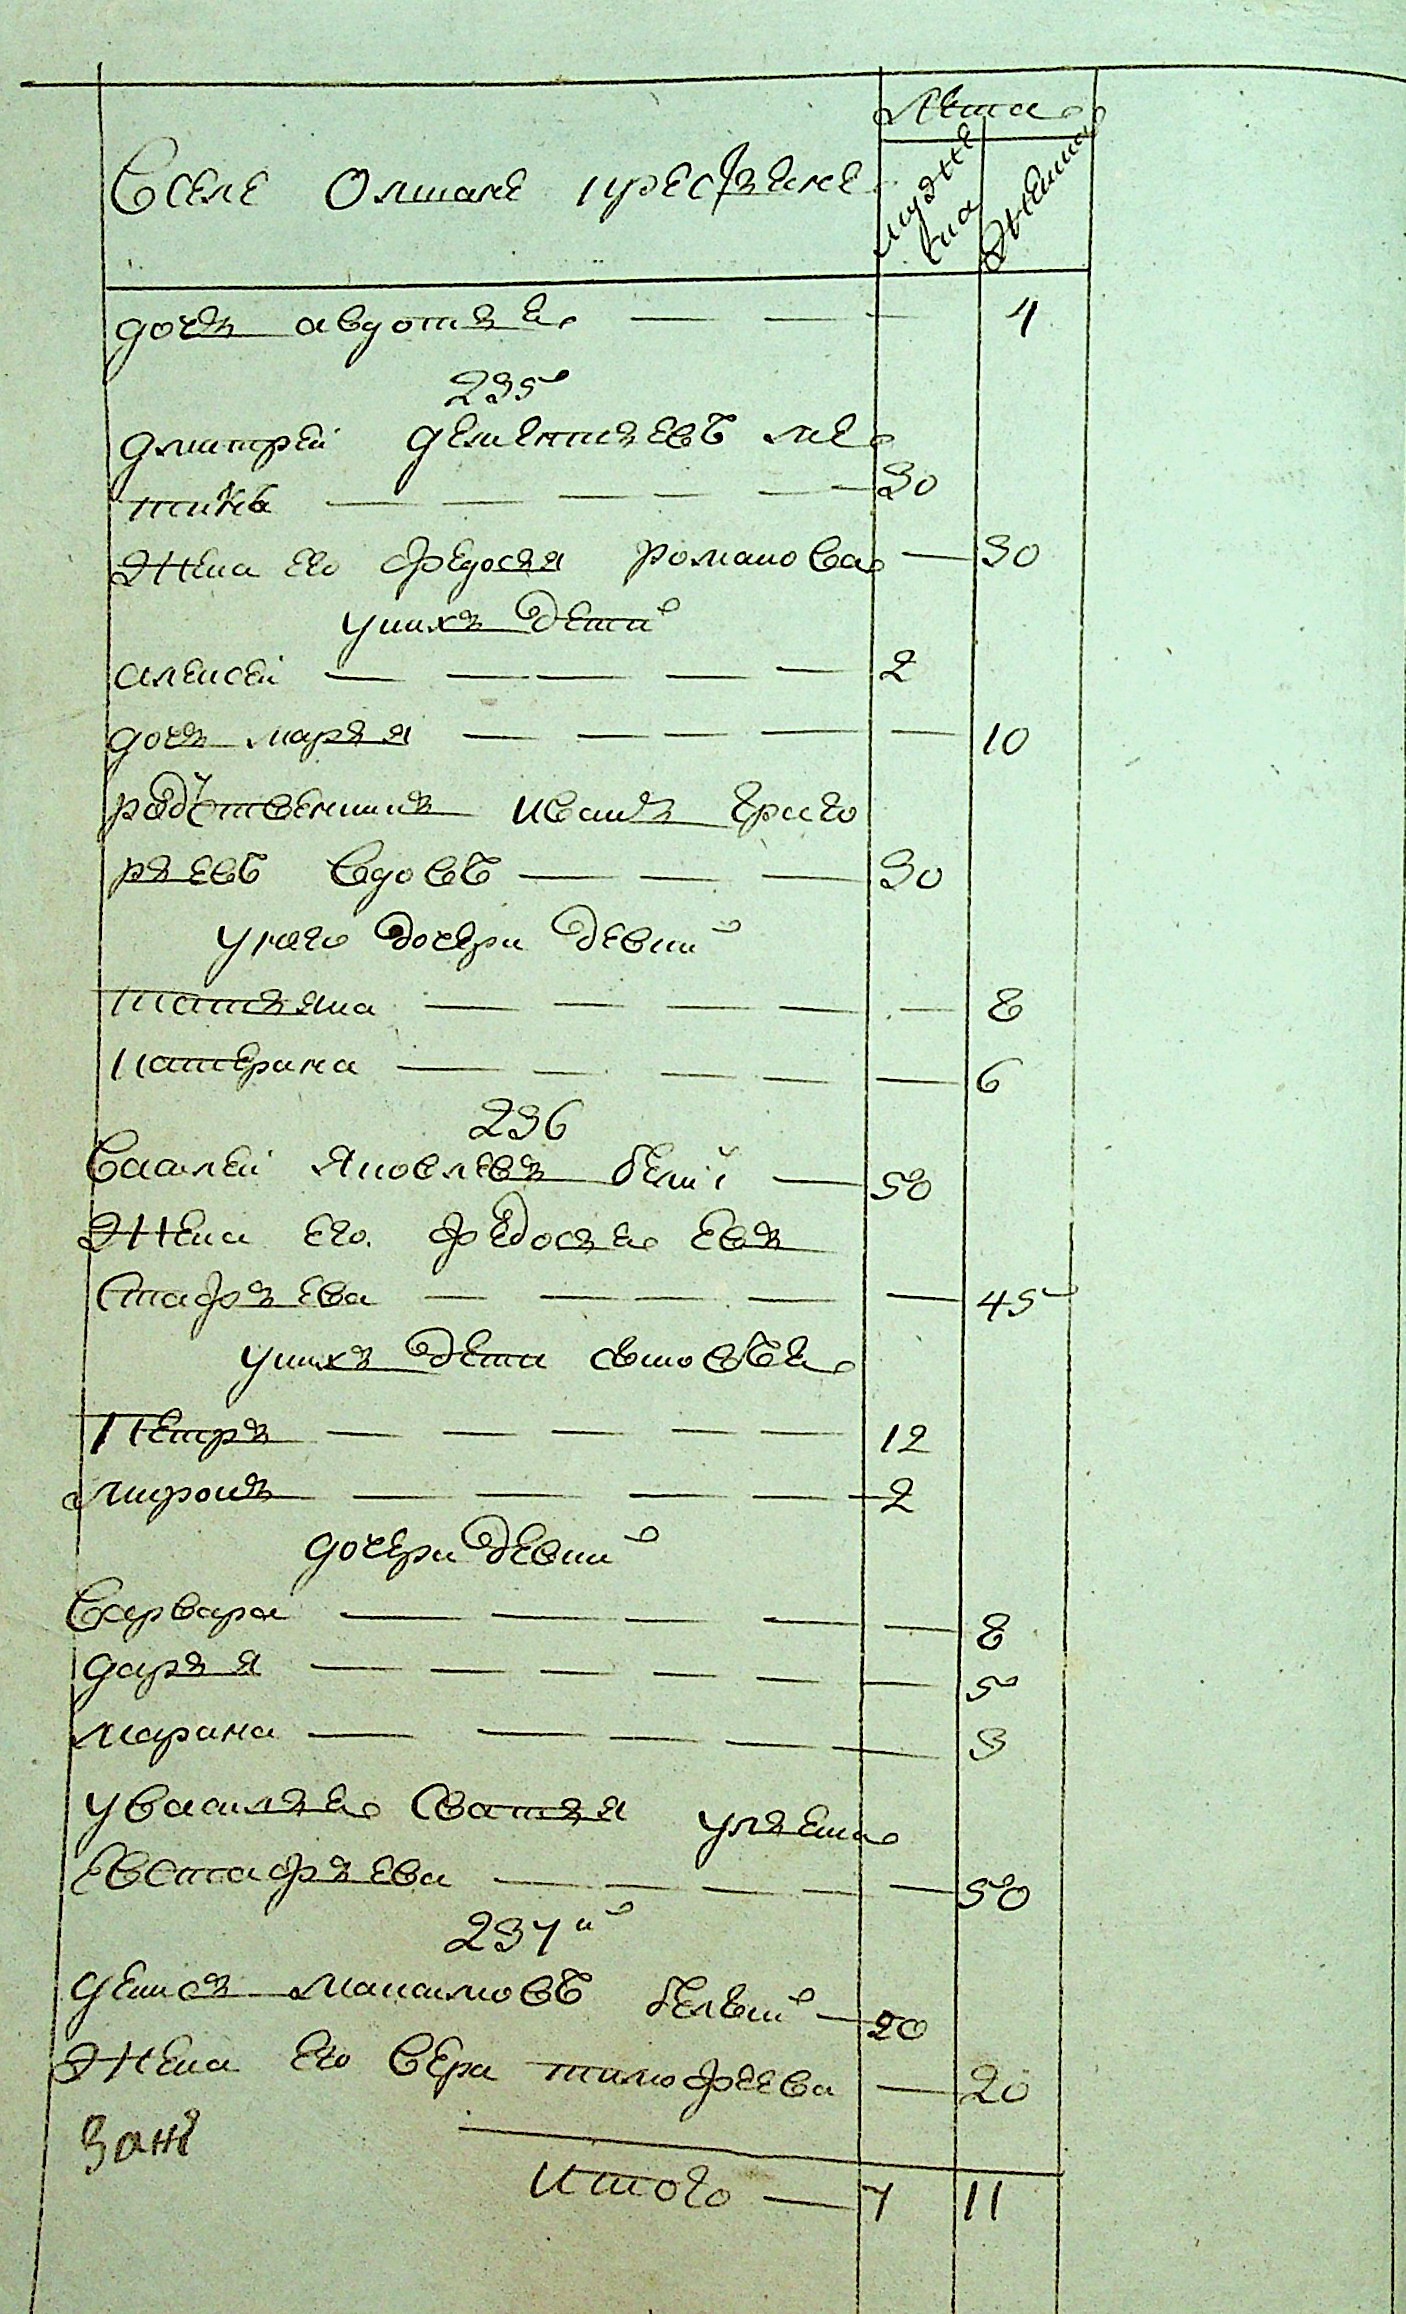 Лѣта
Вселе Олшане
мужеска
женска
дочь авдотья — — — 7
235
дмитрей дементьевъ ме
тика — — — — — 30
жена его федосья романова — 30
унихъ дети
алексей — — — — — 2
дочь марья — — — — — 10
родственникъ иванъ григо
рьевъ вдовъ — — — 30
унего дочери девки
татьяна — — — — — 8
катерина — — — — — 6
236
василей яковлевъ белий — 50
жена его федосья евъ
стафьева — — — — — 45
унихъ дети сыновья
петръ — — — — — 12
миронъ — — — — — 2
дочери девки
варвара — — — — — 8
дарья — — — — — — 5
марина — — — — — 3
увасилья сватья ульяна
евстафьева — — — — — 50
237
денисъ максимовъ белый — 20
жена его вера тимофеева — 20
Итого — 7 11